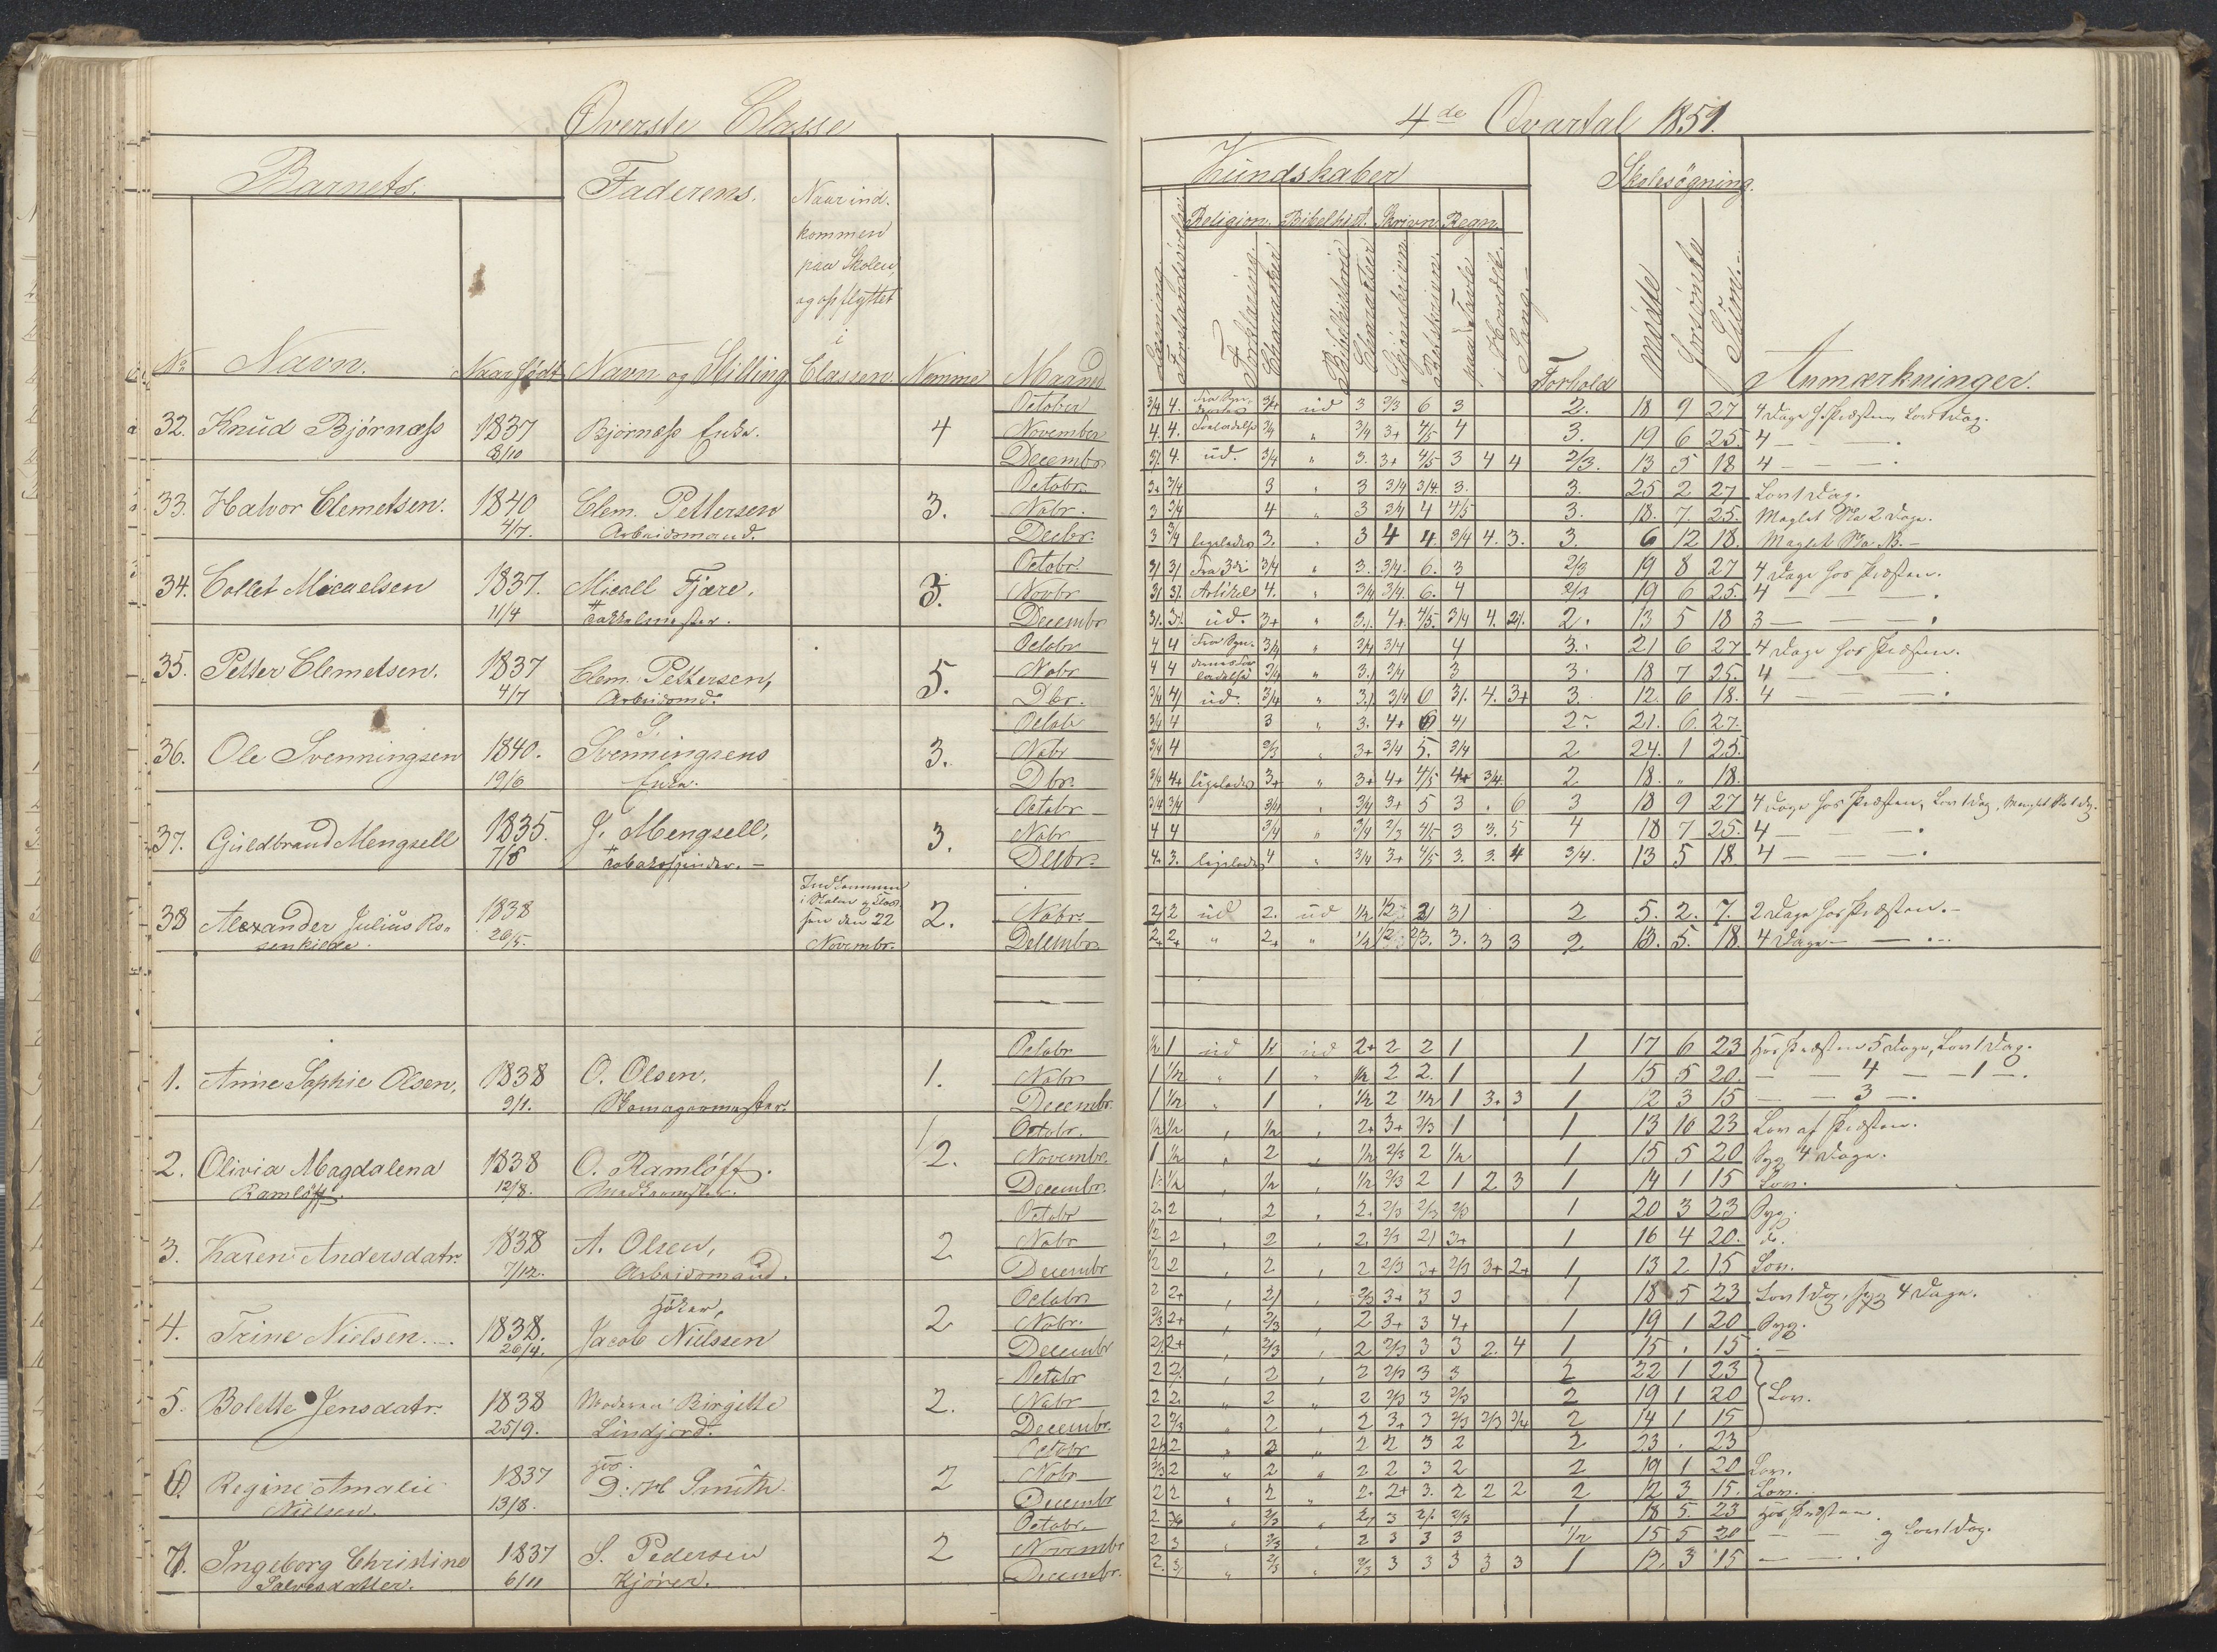 Øverste Classe
4de Qvartal 1851.
Barnets. Faderens. Naar ind-
kommen
paa Skolen,
og opflyttet
i
No Navn. Naar født Navn og Stilling Classen Nemme Maaned
Kundskaber Skolesøgning.
Religion. Bibelhist. Skrivn. Regn.
Læsning. Forstandsøvelse Forklaring. Bibelhistorie Skjønskrivn. Retskrivn. paa Tavle i Hovedet. Sang. Forhold mødte forsømte Sum. Anmærkninger.
32. Knud Bjørnæss 1837 8/10 Bjørnæss Enke. 4
October 3/4 4. 3/4 ud 3 2/3 6 3 2. 18 9 27 4 Dage h. Præsten, Lov 1 Dag.
November 4. 4. 3/4 " 3/4 3+ 4/5 4 3. 19 6 25. 4 — — .
Decembr 4. ud. 3/4 " 3. 3+ 4/5 3 4 4 2/3. 13 5 18 4 — — .
33. Halvor Clemetsen. 1840 4/7. Clem. Pettersen Arbeidsmand. 3.
Octobr. 3+ 3/4 3 " 3 3/4 3/4. 3. 3. 25 2 27 Lov 1 Dag.
Nobr. 3 3/4 4 " 3 3/4 4 4/5 3. 18. 7. 25. 2 Dage.
Decbr. 3 3/4 ligeledes 3. " 3 4 4. 3/4 4. 3. 3. 6 12 18.
34. Collet Micaelsen 1837. 11/4 Micall Fjære, Takkelmester. 3.
Octobr Fra 3die 3/4 " 3. 3/4. 6. 3 2/3 19 8 27 4 Dage hos Præsten.
Novbr Artikel 4. " 3/4 3/4. 6. 4 2/3 19 6 25. 4 — — .
Decembr ud. 3+ " 4+ 4/5. 3/4 4. 2. 13 5 18 3 — — .
35. Petter Clemetsen. 1837 4/7 Clem. Pettersen, Arbeidsmd. 5.
Octobr 4 4 3/4 " 3/4 3/4 4 3. 21 6 27 4 Dage hos Præsten.
Nobr 4 4 3/4 " 3/4 3 3. 18 7 25. 4 — — .
Dbr. 3/4 ud. 3/4 " 3/4 6 4. 3+ 3. 12. 6 18. 4 — — .
36. Ole Svenningsen 1840. 19/6 S. Svenningsens Enke. 3.
Octobr 3/4 4 3 " 3. 4+ 2. 21. 6. 27.
Nobr 3/4 4 2/3 " 3+ 3/4 5. 3/4 2 24. 1 25.
Dbr. 3/4 4+ ligeledes 3+ " 3+ 4+ 4/5 4+ 3/4. 2 18. " 18.
37. Guldbrand Mengsell 1835. 7/5 J. Mengsell, Tobaksspinder. — 3.
Octobr 3/4 3/4 3/4 " 3/4 3+ 5 3 . 6 3 18 9 27 4 Dage hos Præsten, Lov 1 Dag,
Nobr 4 4 3/4 " 3/4 2/3 4/5 3 3. 5 4 18 7 25. 4 — — .
Decbr. 4. 3. ligeledes 4 " 3/4 3+ 4/5 3. 3. 4 3/4. 13 5 18 4 — — .
38 Alexander Julius Ro-
senkilde. 1838 26/5. Indkommen
i Skolen og Klas-
sen den 22
Novembr. 2.
Nobr. 2 ud 2. ud 1/2 1/2 2 5. 2. 7. 2 Dage hos Præsten. —
Decembr 2+ 2+ " 2+ " 1/2 1/2 2/3. 3. 3 3 2 13. 5. 18. 4 Dage — — .
1. Anne Sophie Olsen, 1838 9/1. O. Olsen, Skomagermester. 1.
Octobr 1/2 1 ud ud 2+ 2 2 1 1 17 6 23 Hos Præsten 5 Dage, Lov 1 Dag.
Nobr 1 1/2 " 1 " 1/2 2 2. 1 1 15 5 20. — — 4 — — 1 — .
Decembr. 1 1/2 " 1 " 1/2 2 1/2 1 3+ 3 1 12 3 15 — — 3 — .
2. Olivia Magdalena
Ramløff. 1838 12/8. O. Ramløff. 1/2.
Octobr. 1/2 1/2 " 1/2 " 2+ 3+ 2/3 1 1 13 10 23 Lov af Præsten.
Novembr. 1 1/2 " 2 " 1/2 2/3 2 1/2 1 15 5 20 Syg 4 Dage.
Decembr. 1/2 " 1/2 " 1/2 2/3 2 1 2 3 1 14 1 15 Lov.
3. Karen Andersdatr. 1838 7/12. A. Olsen, Arbeidsmand. 2
Octobr 2 " 2 " 2. 2/3 2/3 2/3 1 20 3 23 Syg.
Nobr 1/2 2 " 2 " 2. 2/3 3+ 1 16 4 20. do.
Decembr 1/2 2 " 2 " 2 2/3 3+ 2/3 3+ 2+ 1 13 2 15 Lov.
4. Trine Nielsen. — . 1838. 26/4. Høker, Jacob Nielssen 2
Octobr 2 2+ " " 2/3 3+ 3 3 1 18 5 23 Lov 1 Dag, syg 4 Dage.
Nobr. 2/3 2+ " 2/3 " 2 3+ 3 4+ 1 19 1 20 Syg.
Decembr 2+ " 2/3 " 2 2/3 3 3 2. 4 1 15 . 15 . —
5. Bolette Jensdatr. 1838 25/9. Moderen Birgitte
Lindjord. 2.
Octobr 2 " 2 " 2 2/3 3 3 2 22 1 23
Nobr 2 2. " 2 " 2 2/3 3 2/3 2 19 1 20 Lov.
Decembr. 2 2/3 " 2 " 2 3+ 3 2/3 2/3 3/4 2 14 1 15
6. Regine Amalie
Nielsen. 1837 13/8. D. H. Smith. 2
Octobr 2 " 3 " 2 2 3 2 2 23 . 23
Nobr 2/3 2 " 2 " 2 2 3 2 2 19 1 20 Lov.
Decembr 2 2 " 2 " 2. 2+ 3. 2 2 2 2 12 3 15. Lov.
7. Ingeborg Christine
Salvesdatter. 1837 6/11 S. Pedersen
Kjører. 2
Octobr. 2 " 2/3 " 3 2/3 1 18 5. 23 Hos Præsten.
Novembr 2 3 " 2/3 " 2 3 3 3 1/2 15 5 20 — — og Lov 1 Dag.
Decembr. 2. " 2/3 " 2/3 3 3 3 3 3 1 12. 3 15 — — .